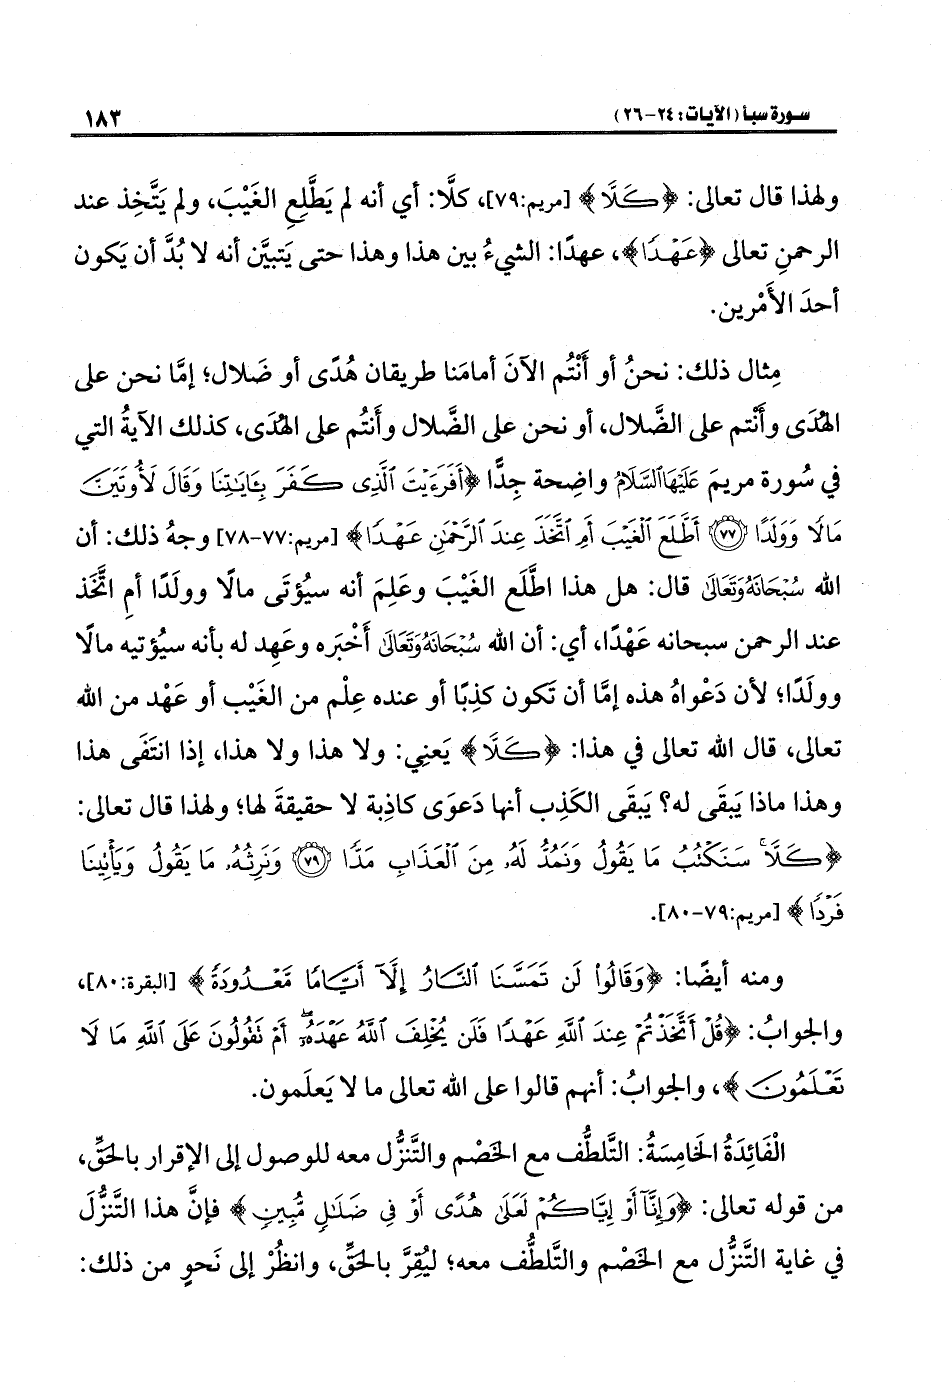 سورة سبأ (الآيات: ٢٤-٢٦) ١٨٣
ولهذا قال تعالى: ﴿كَلَّا﴾ [مريم:٧٩]، كلَّا: أي أنه لم يَطَّلِعِ الغَيْبَ، ولم يَتَّخِذ عند
الرحمنِ تعالى ﴿عَهْدًا﴾، عهدًا: الشيءُ بين هذا وهذا حتى يَتبيَّن أنه لا بُدَّ أن يَكون
أحدَ الأَمْرين.
مِثال ذلك: نحنُ أو أَنْتُم الآنَ أمامَنا طريقان هُدًى أو ضَلال؛ إمَّا نحن على
الهُدَى وأَنْتم على الضَّلال، أو نحن على الضَّلال وأَنتُم على الهُدَى، كذلك الآيةُ التي
في سُورة مريمَ عَلَيْهَا السَّلَامُ واضِحة جِدًّا ﴿أَفَرَءَيْتَ ٱلَّذِى كَفَرَ بِـَٔايَـٰتِنَا وَقَالَ لَأُوتَيَنَّ
مَالًا وَوَلَدًا ٧٧ أَطَّلَعَ ٱلْغَيْبَ أَمِ ٱتَّخَذَ عِندَ ٱلرَّحْمَـٰنِ عَهْدًا﴾ [مريم:٧٧-٧٨] وجهُ ذلك: أن
الله سُبْحَانَهُ وَتَعَالَىٰ قال: هل هذا اطَّلَع الغَيْبَ وعَلِمَ أنه سيُؤتَى مالًا وولَدًا أم اتَّخَذ
عند الرحمن سبحانه عَهْدًا، أي: أن الله سُبْحَانَهُ وَتَعَالَىٰ أَخْبَره وعَهِد له بأنه سيُؤتيه مالًا
وولَدًا؛ لأن دَعْواهُ هذه إمَّا أن تَكون كذِبًا أو عنده عِلْم من الغَيْب أو عَهْد من الله
تعالى، قال الله تعالى في هذا: ﴿كَلَّا﴾ يَعنِي: ولا هذا ولا هذا، إذا انتَفَى هذا
وهذا ماذا يَبقَى له؟ يَبقَى الكَذِب أنها دَعوَى كاذِبة لا حقيقةَ لها؛ ولهذا قال تعالى:
﴿كَلَّا ۚ سَنَكْتُبُ مَا يَقُولُ وَنَمُدُّ لَهُۥ مِنَ ٱلْعَذَابِ مَدًّا ٧٩ وَنَرِثُهُۥ مَا يَقُولُ وَيَأْتِينَا
فَرْدًا﴾ [مريم:٧٩-٨٠].
ومنه أيضًا: ﴿وَقَالُوا۟ لَن تَمَسَّنَا ٱلنَّارُ إِلَّآ أَيَّامًا مَّعْدُودَةً﴾ [البقرة:٨٠]،
والجوابُ: ﴿قُلْ أَتَّخَذْتُمْ عِندَ ٱللَّهِ عَهْدًا فَلَن يُخْلِفَ ٱللَّهُ عَهْدَهُۥٓ ۖ أَمْ تَقُولُونَ عَلَى ٱللَّهِ مَا لَا
تَعْلَمُونَ﴾، والجوابُ: أنهم قالوا على الله تعالى ما لا يَعلَمون.
الْفَائِدَةُ الخَامِسَةُ: التَّلطُّف مع الخَصْم والتَّنزُّل معه للوصول إلى الإقرار بالحَقِّ،
من قوله تعالى: ﴿وَإِنَّآ أَوْ إِيَّاكُمْ لَعَلَىٰ هُدًى أَوْ فِى ضَلَـٰلٍ مُّبِينٍ﴾ فإنَّ هذا التَّنزُّلَ
في غاية التَّنزُّل مع الخَصْم والتَّلطُّف معه؛ ليُقِرَّ بالحَقِّ، وانظُرْ إلى نَحوٍ من ذلك: